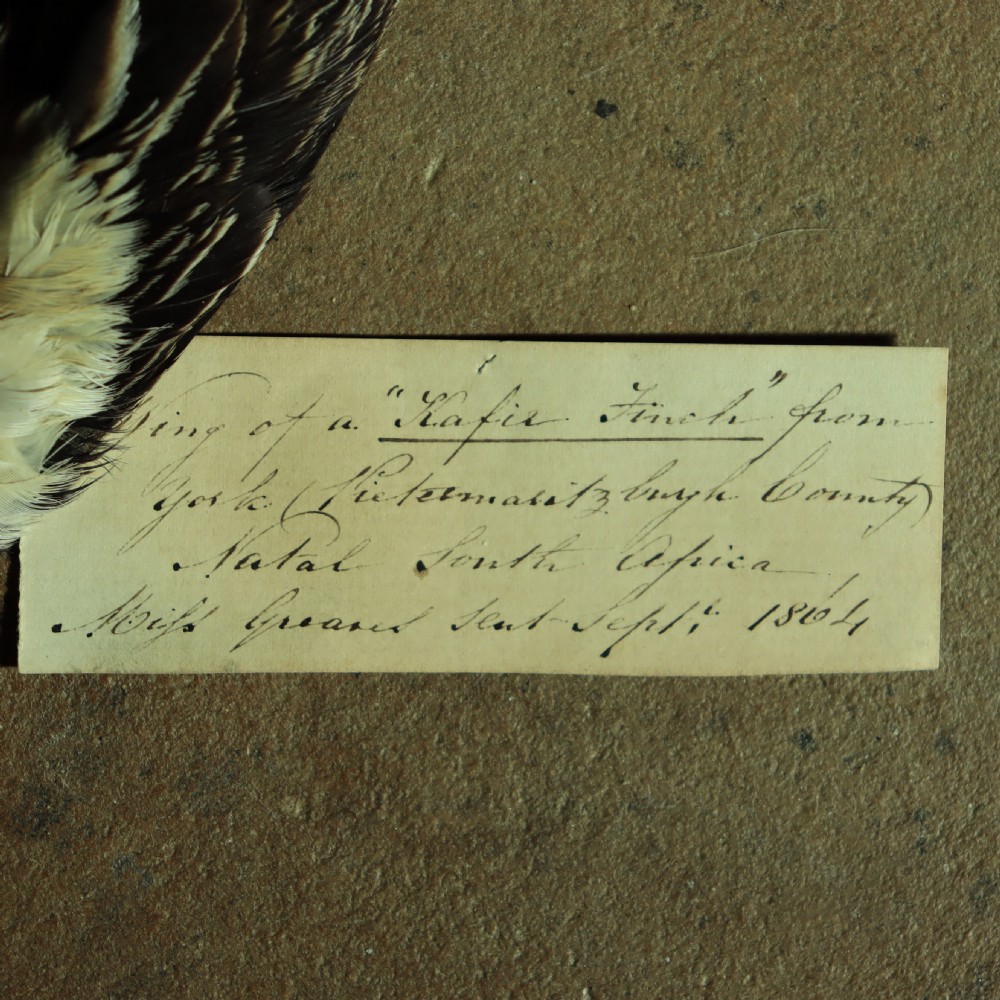 Wing of a "Kafir Finch" from
York (Pietermaritzburgh County)
Natal South Africa
Miss Greaves sent Sept: 1864